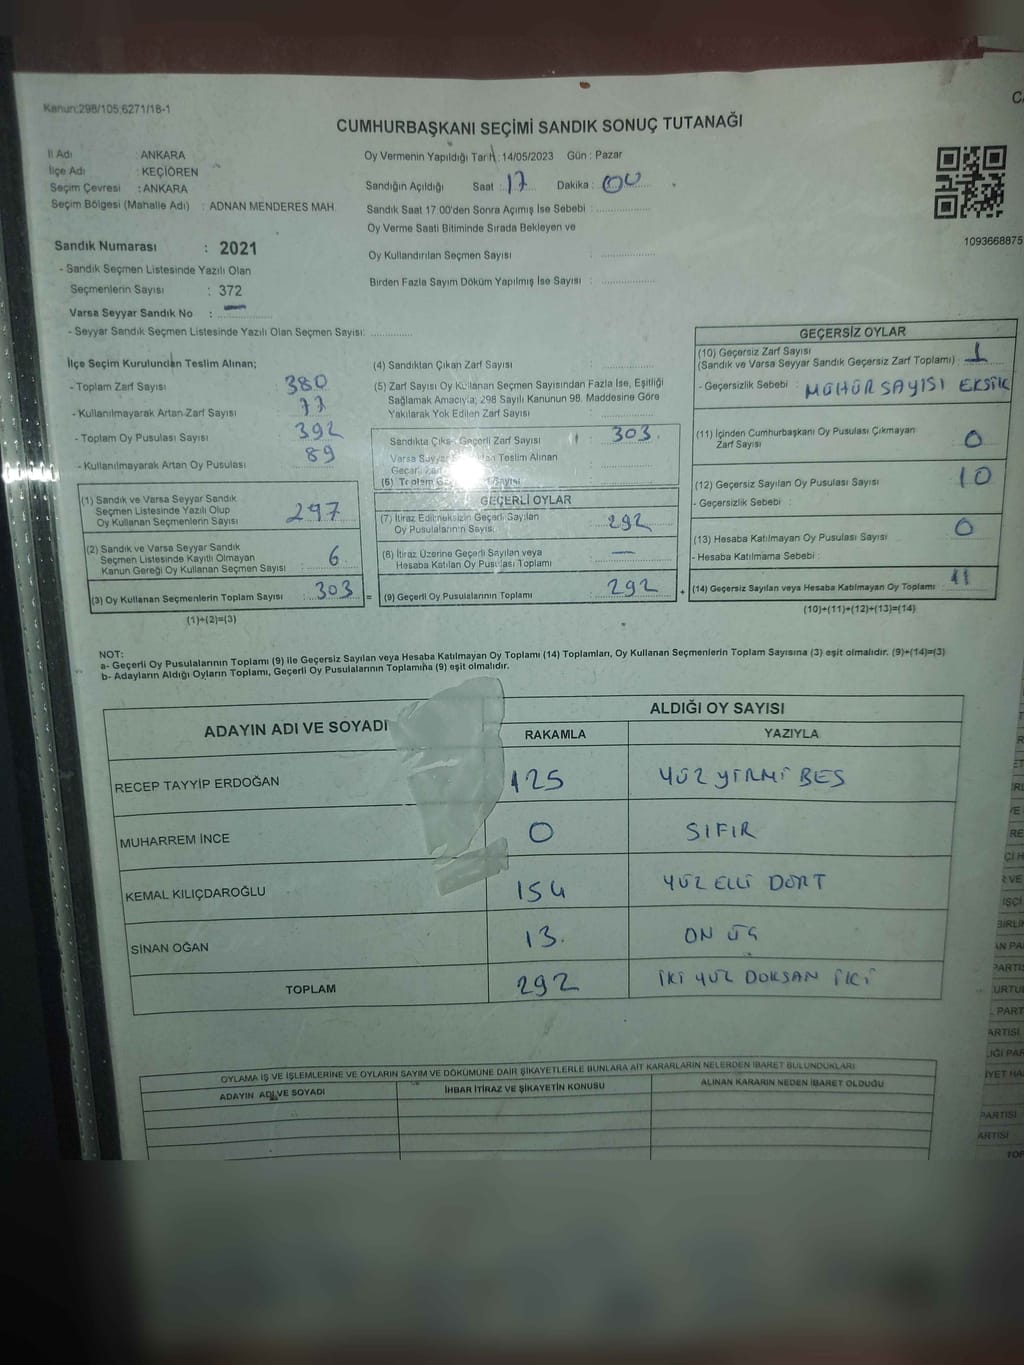 Kanun:298/105,6271/18-1
CUMHURBAŞKANI SEÇİMİ SANDIK SONUÇ TUTANAĞI
İl Adı : ANKARA
İlçe Adı : KEÇİÖREN
Seçim Çevresi : ANKARA
Seçim Bölgesi (Mahalle Adı) : ADNAN MENDERES MAH.
Oy Vermenin Yapıldığı Tarih :14/05/2023 Gün : Pazar
Sandığın Açıldığı Saat : 17 Dakika : 00
Sandık Saat 17.00'den Sonra Açımış İse Sebebi :
Oy Verme Saati Bitiminde Sırada Bekleyen ve
Oy Kullandırılan Seçmen Sayısı :
Birden Fazla Sayım Döküm Yapılmış İse Sayısı :
1093668875
Sandık Numarası : 2021
- Sandık Seçmen Listesinde Yazılı Olan
Seçmenlerin Sayısı : 372
Varsa Seyyar Sandık No : —
- Seyyar Sandık Seçmen Listesinde Yazılı Olan Seçmen Sayısı:
İlçe Seçim Kurulundan Teslim Alınan;
- Toplam Zarf Sayısı : 380
- Kullanılmayarak Artan Zarf Sayısı : 77
- Toplam Oy Pusulası Sayısı : 392
- Kullanılmayarak Artan Oy Pusulası : 89
(1) Sandık ve Varsa Seyyar Sandık
Seçmen Listesinde Yazılı Olup
Oy Kullanan Seçmenlerin Sayısı : 297
(2) Sandık ve Varsa Seyyar Sandık
Seçmen Listesinde Kayıtlı Olmayan
Kanun Gereği Oy Kullanan Seçmen Sayısı : 6
(3) Oy Kullanan Seçmenlerin Toplam Sayısı : 303 =
(1)+(2)=(3)
(4) Sandıktan Çıkan Zarf Sayısı :
(5) Zarf Sayısı Oy Kullanan Seçmen Sayısından Fazla İse, Eşitliği
Sağlamak Amacıyla; 298 Sayılı Kanunun 98. Maddesine Göre
Yakılarak Yok Edilen Zarf Sayısı :
Sandıkta Çıkan Geçerli Zarf Sayısı : 303
Varsa Seyyar Teslim Alınan
Geçerli Zarf
(6) Toplam Sayısı
GEÇERLİ OYLAR
(7) İtiraz Edilmeksizin Geçerli Sayılan
Oy Pusulalarının Sayısı : 292
(8) İtiraz Üzerine Geçerli Sayılan veya
Hesaba Katılan Oy Pusulası Toplamı : —
(9) Geçerli Oy Pusulalarının Toplamı : 292 +
GEÇERSİZ OYLAR
(10) Geçersiz Zarf Sayısı
(Sandık ve Varsa Seyyar Sandık Geçersiz Zarf Toplamı) : 1
- Geçersizlik Sebebi : MÜHÜR SAYISI EKSİK
(11) İçinden Cumhurbaşkanı Oy Pusulası Çıkmayan
Zarf Sayısı : 0
(12) Geçersiz Sayılan Oy Pusulası Sayısı : 10
- Geçersizlik Sebebi :
(13) Hesaba Katılmayan Oy Pusulası Sayısı : 0
- Hesaba Katılmama Sebebi :
(14) Geçersiz Sayılan veya Hesaba Katılmayan Oy Toplamı : 11
(10)+(11)+(12)+(13)=(14)
NOT:
a- Geçerli Oy Pusulalarının Toplamı (9) ile Geçersiz Sayılan veya Hesaba Katılmayan Oy Toplamı (14) Toplamları, Oy Kullanan Seçmenlerin Toplam Sayısına (3) eşit olmalıdır. (9)+(14)=(3)
b- Adayların Aldığı Oyların Toplamı, Geçerli Oy Pusulalarının Toplamına (9) eşit olmalıdır.
ADAYIN ADI VE SOYADI ALDIĞI OY SAYISI
RAKAMLA YAZIYLA
RECEP TAYYİP ERDOĞAN 125 YÜZ YİRMİ BEŞ
MUHARREM İNCE 0 SIFIR
KEMAL KILIÇDAROĞLU 154 YÜZ ELLİ DÖRT
SİNAN OĞAN 13. ON ÜÇ
TOPLAM 292 İKİ YÜZ DOKSAN İKİ
OYLAMA İŞ VE İŞLEMLERİNE VE OYLARIN SAYIM VE DÖKÜMÜNE DAİR ŞİKAYETLERLE BUNLARA AİT KARARLARIN NELERDEN İBARET BULUNDUKLARI
ADAYIN ADI VE SOYADI İHBAR İTİRAZ VE ŞİKAYETİN KONUSU ALINAN KARARIN NEDEN İBARET OLDUĞU